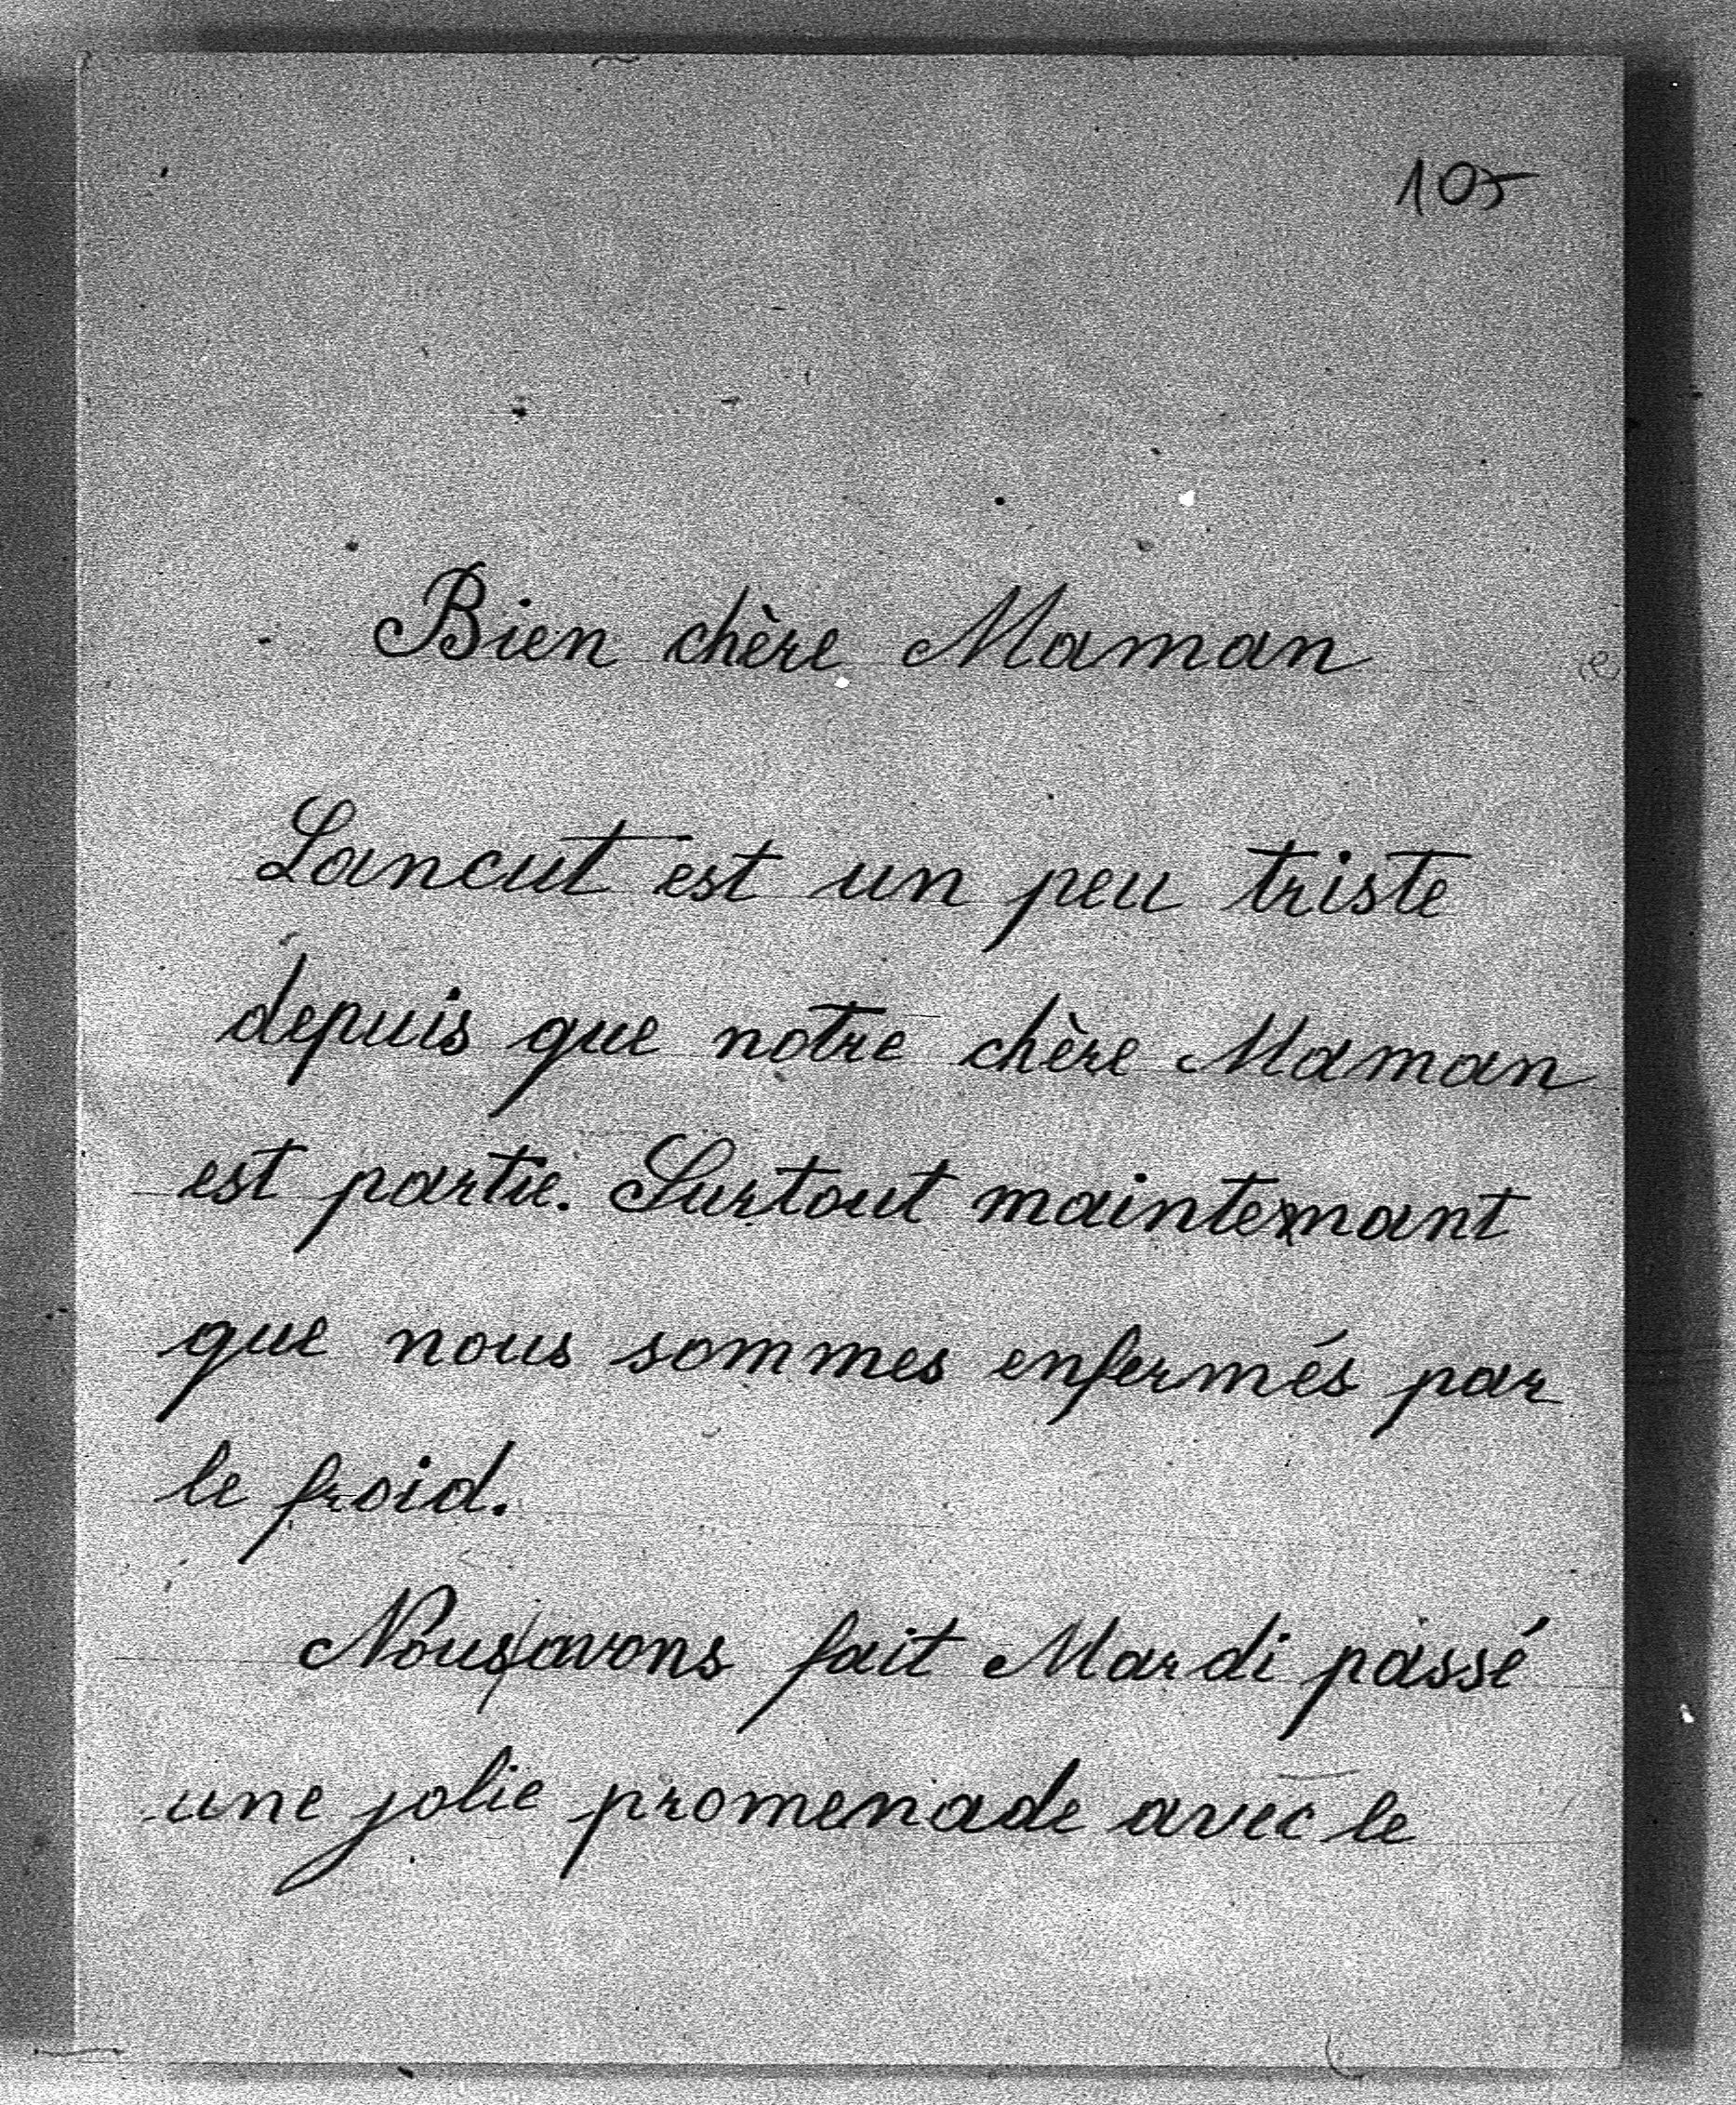 105
Bien chère Maman
Lancut est un peu triste
depuis que notre chère Maman
est partie. Surtout maintenant
que nous sommes enfermés par
le froid.
Nous avons fait Mardi passé
une jolie promenade avec le